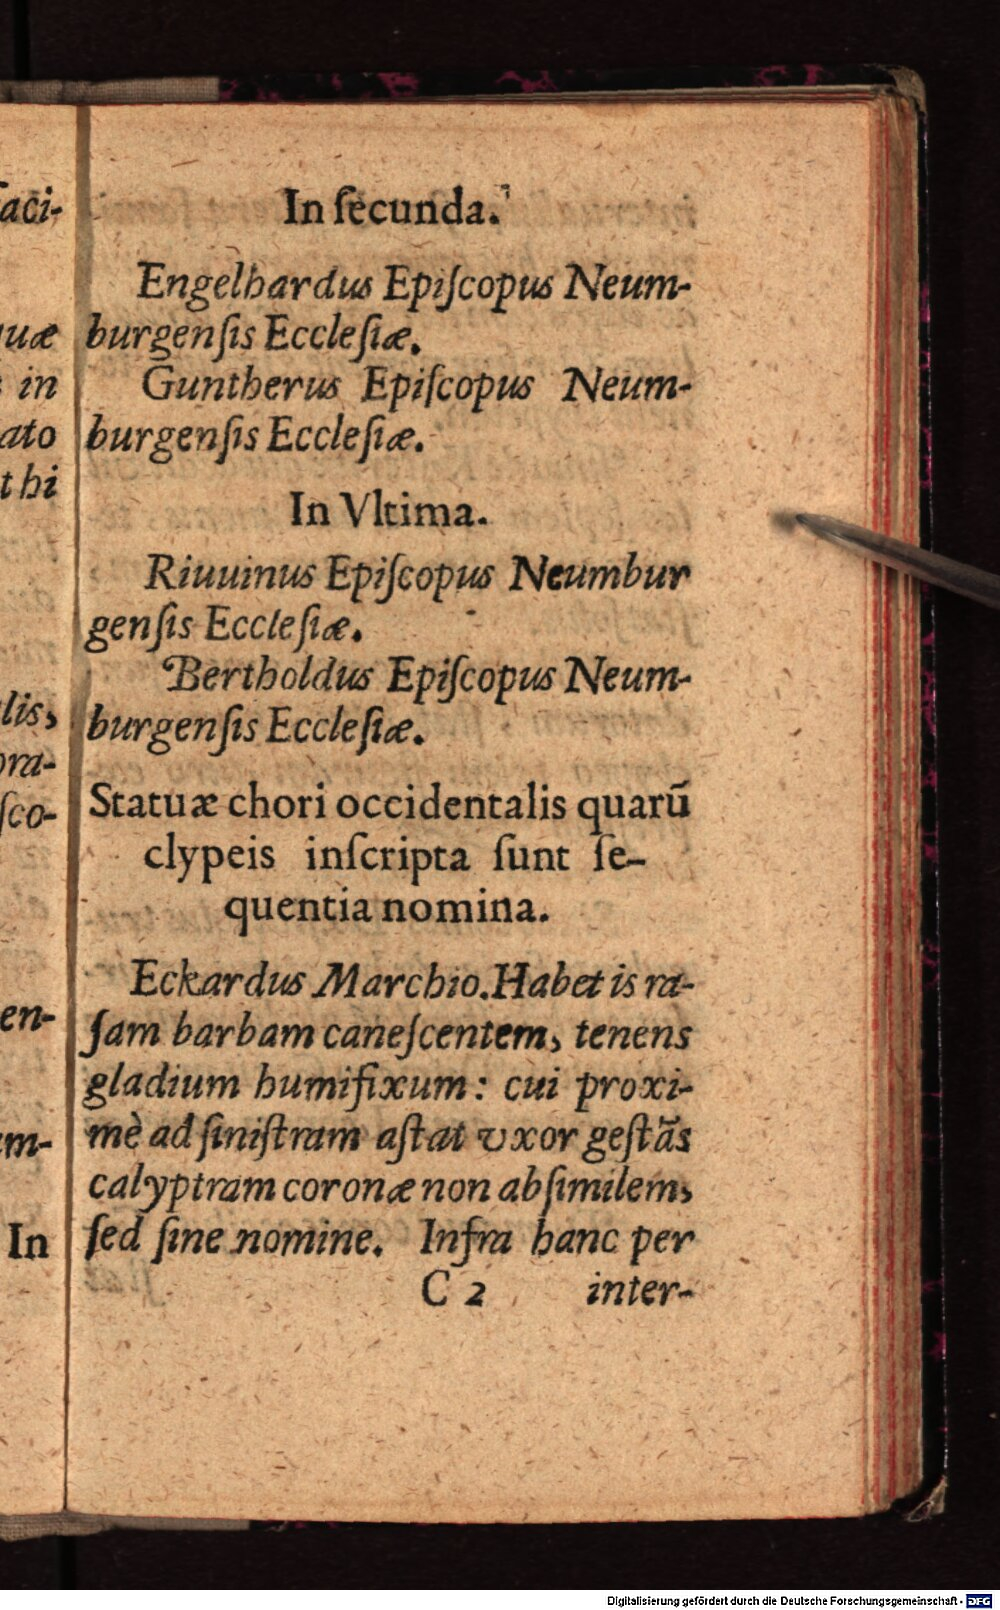 aci-
quæ
in
ato
thi
lis,
ora-
ſco-
en-
um-
In
In ſecunda.
Engelhardus Epiſcopus Neum-
burgenſis Eccleſiæ.
Guntherus Epiſcopus Neum-
burgenſis Eccleſiæ.
In Vltima.
Riuuinus Epiſcopus Neumbur
genſis Eccleſiæ.
Bertholdus Epiſcopus Neum-
burgenſis Eccleſiæ.
Statuæ chori occidentalis quarū
clypeis inſcripta ſunt ſe-
quentia nomina.
Eckardus Marchio. Habet is ra-
ſam barbam caneſcentem, tenens
gladium humifixum: cui proxi-
mè ad ſiniſtram aſtat vxor geſtãs
calyptram coronæ non abſimilem,
ſed ſine nomine. Infra hanc per
C 2 inter-
Digitalisierung gefördert durch die Deutsche Forschungsgemeinschaft - DFG